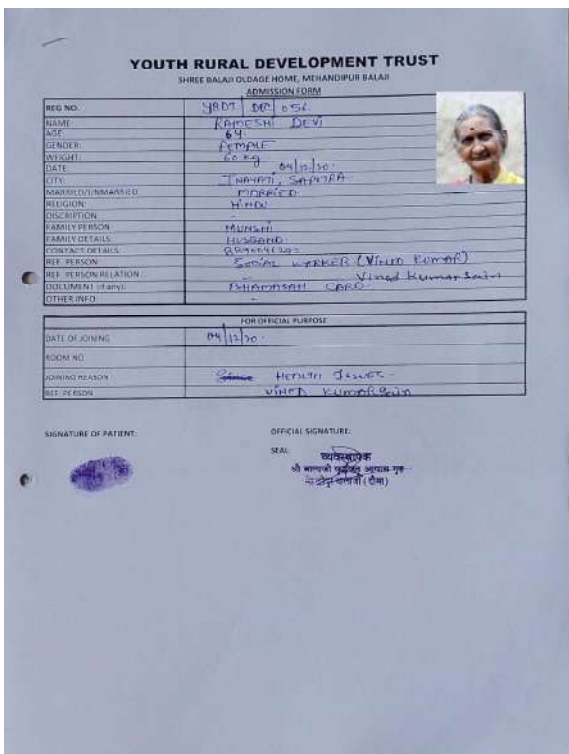 YOUTH RURAL DEVELOPMENT TRUST
SHREE BALAJI OLDAGE HOME, MEHANDIPUR BALAJI
ADMISSION FORM
REG NO. YRDT DEC 056
NAME: RAMESHI DEVI
AGE: 64
GENDER: FEMALE
WEIGHT: 60 kg
DATE 04/12/20
CITY:
MARRIED/UNMARRIED MARRIED
RELIGION: HINDU
DISCRIPTION -
FAMILY PERSON MUNSHI
FAMILY DETAILS: HUSBAND
CONTACT DETAILS:
REF. PERSON SOCIAL WORKER (VINOD KUMAR)
REF. PERSON RELATION: Vinod Kumar Sain
DOCUMENT (if any): CARD
OTHER INFO: -
FOR OFFICIAL PURPOSE
DATE OF JOINING 04/12/20
ROOM NO
JOINING REASON HEALTH
REF. PERSON VINOD KUMAR Sain
SIGNATURE OF PATIENT:
OFFICIAL SIGNATURE:
SEAL:
व्यवस्थापक
श्री बालाजी आवास गृह
बालाजी (दौसा)